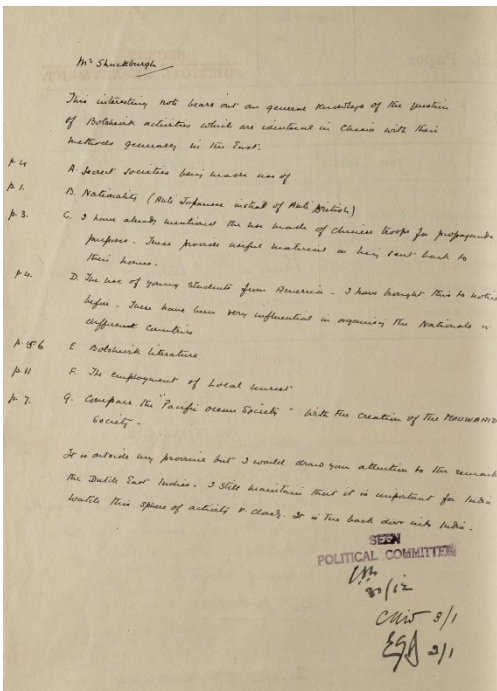 Mr Shuckburgh
This interesting note bears out our general knowledge of the question
of Bolshevik activities which are identical in China with their
methods generally in the East.
p. 4 A. Secret Societies being made use of
p. 1. B. Nationality (Anti Japanese instead of Anti British)
p. 3. C. I have already mentioned the use made of Chinese troops for propaganda
purposes. These provide useful material on being sent back to
their homes.
p. 4. D. The use of young students from America - I have brought this to notice
before. These have been very influential in organising the Nationals in
different countries
p. 5 6 E. Bolshevik literature
p. 11 F. The employment of Local unrest
p. 7. G. Compare the "Pacific Ocean Society" with the creation of the
Society.
It is outside my province but I would draw your attention to the remarks
the Dutch East Indies. I still maintain that it is important for India
watch this sphere of activity v. closely. It is the back door into India.
SEEN
POLITICAL COMMITTEE
3/1
3/1